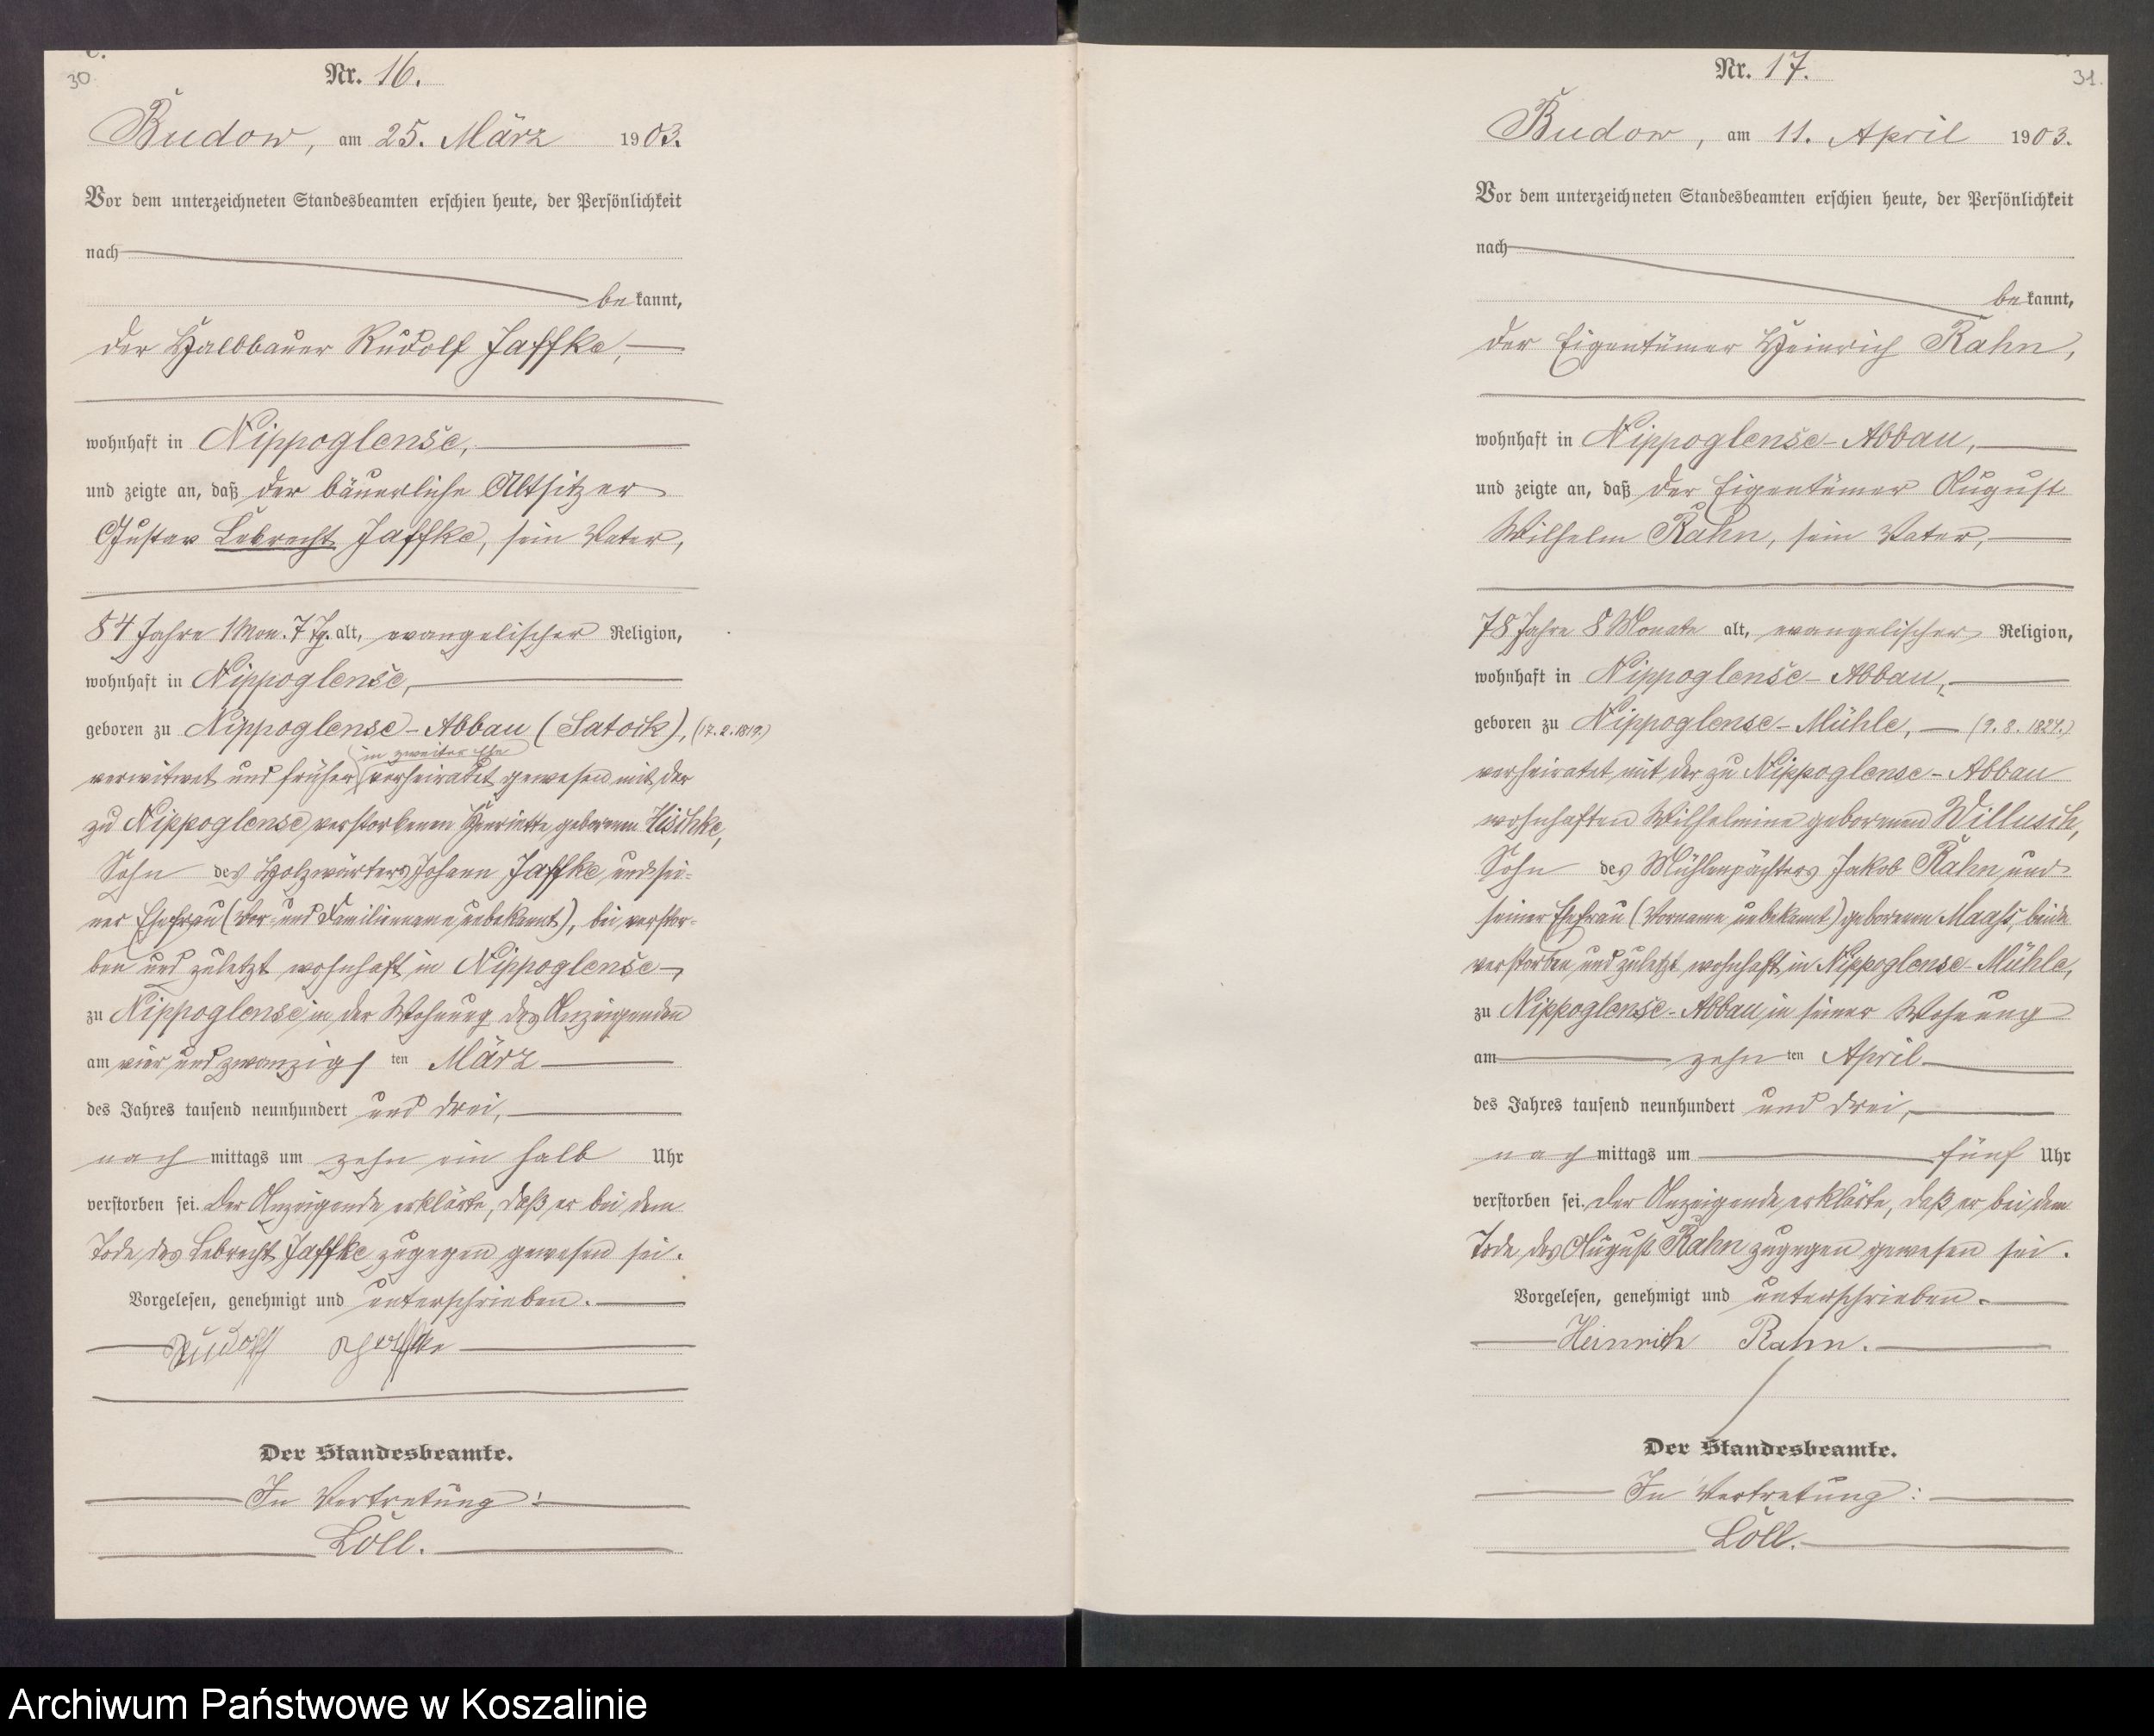 C.
30
Nr. 16.
Budow, am 25. März 1903.
Vor dem unterzeichneten Standesbeamten erschien heute, der Persönlichkeit
nach
bekannt,
der Halbbauer Rudolf Jaffke,
wohnhaft in Nippoglense,
und zeigte an, daß der bäuerliche Altsitzer
Gustav Lebrecht Jaffke, sein Vater,
84 Jahre 1 Mon. 7 Tg. alt, evangelischer Religion,
wohnhaft in Nippoglense,
geboren zu Nippoglense-Abbau (Satock), (17.2.1819.)
in zweiter Ehe
verwitwet und früher verheiratet gewesen mit der
zu Nippoglense verstorbenen Henriette geborenen
Sohn des Holzwärters Johann Jaffke und sei-
ner Ehefrau (Vor- und Familienname unbekannt), bei verstor-
ben und zuletzt wohnhaft in Nippoglense,
zu Nippoglense in der Wohnung des Anzeigenden
am vier und zwanzigsten März
des Jahres tausend neunhundert und drei,
nachmittags um zehn ein halb Uhr
verstorben sei. Der Anzeigende erklärte, daß er bei dem
Tode des Lebrecht Jaffke zugegen gewesen sei.
Vorgelesen, genehmigt und unterschrieben.
Rudolf
Der Standesbeamte.
In Vertretung:
Löll.
31.
Nr. 17.
Budow, am 11. April 1903.
Vor dem unterzeichneten Standesbeamten erschien heute, der Persönlichkeit
nach
bekannt,
der Eigentümer Heinrich Rahn,
wohnhaft in Nippoglense-Abbau,
und zeigte an, daß der Eigentümer August
Wilhelm Rahn, sein Vater,
78 Jahre 8 Monate alt, evangelischer Religion,
wohnhaft in Nippoglense-Abbau,
geboren zu Nippoglense-Mühle, (9.8.1824.)
verheiratet mit der zu Nippoglense-Abbau
wohnhaften Wilhelmine geborenen Willusch,
Sohn des Mühlenpächters Jakob Rahn und
seiner Ehefrau (Vorname unbekannt) geborenen Maaß, beide
verstorben und zuletzt wohnhaft in Nippoglense-Mühle,
zu Nippoglense-Abbau in seiner Wohnung
am zehnten April
des Jahres tausend neunhundert und drei,
nachmittags um fünf Uhr
verstorben sei. Der Anzeigende erklärte, daß er bei dem
Tode des August Rahn zugegen gewesen sei.
Vorgelesen, genehmigt und unterschrieben.
Heinrich Rahn.
Der Standesbeamte.
In Vertretung:
Löll.
Archiwum Państwowe w Koszalinie